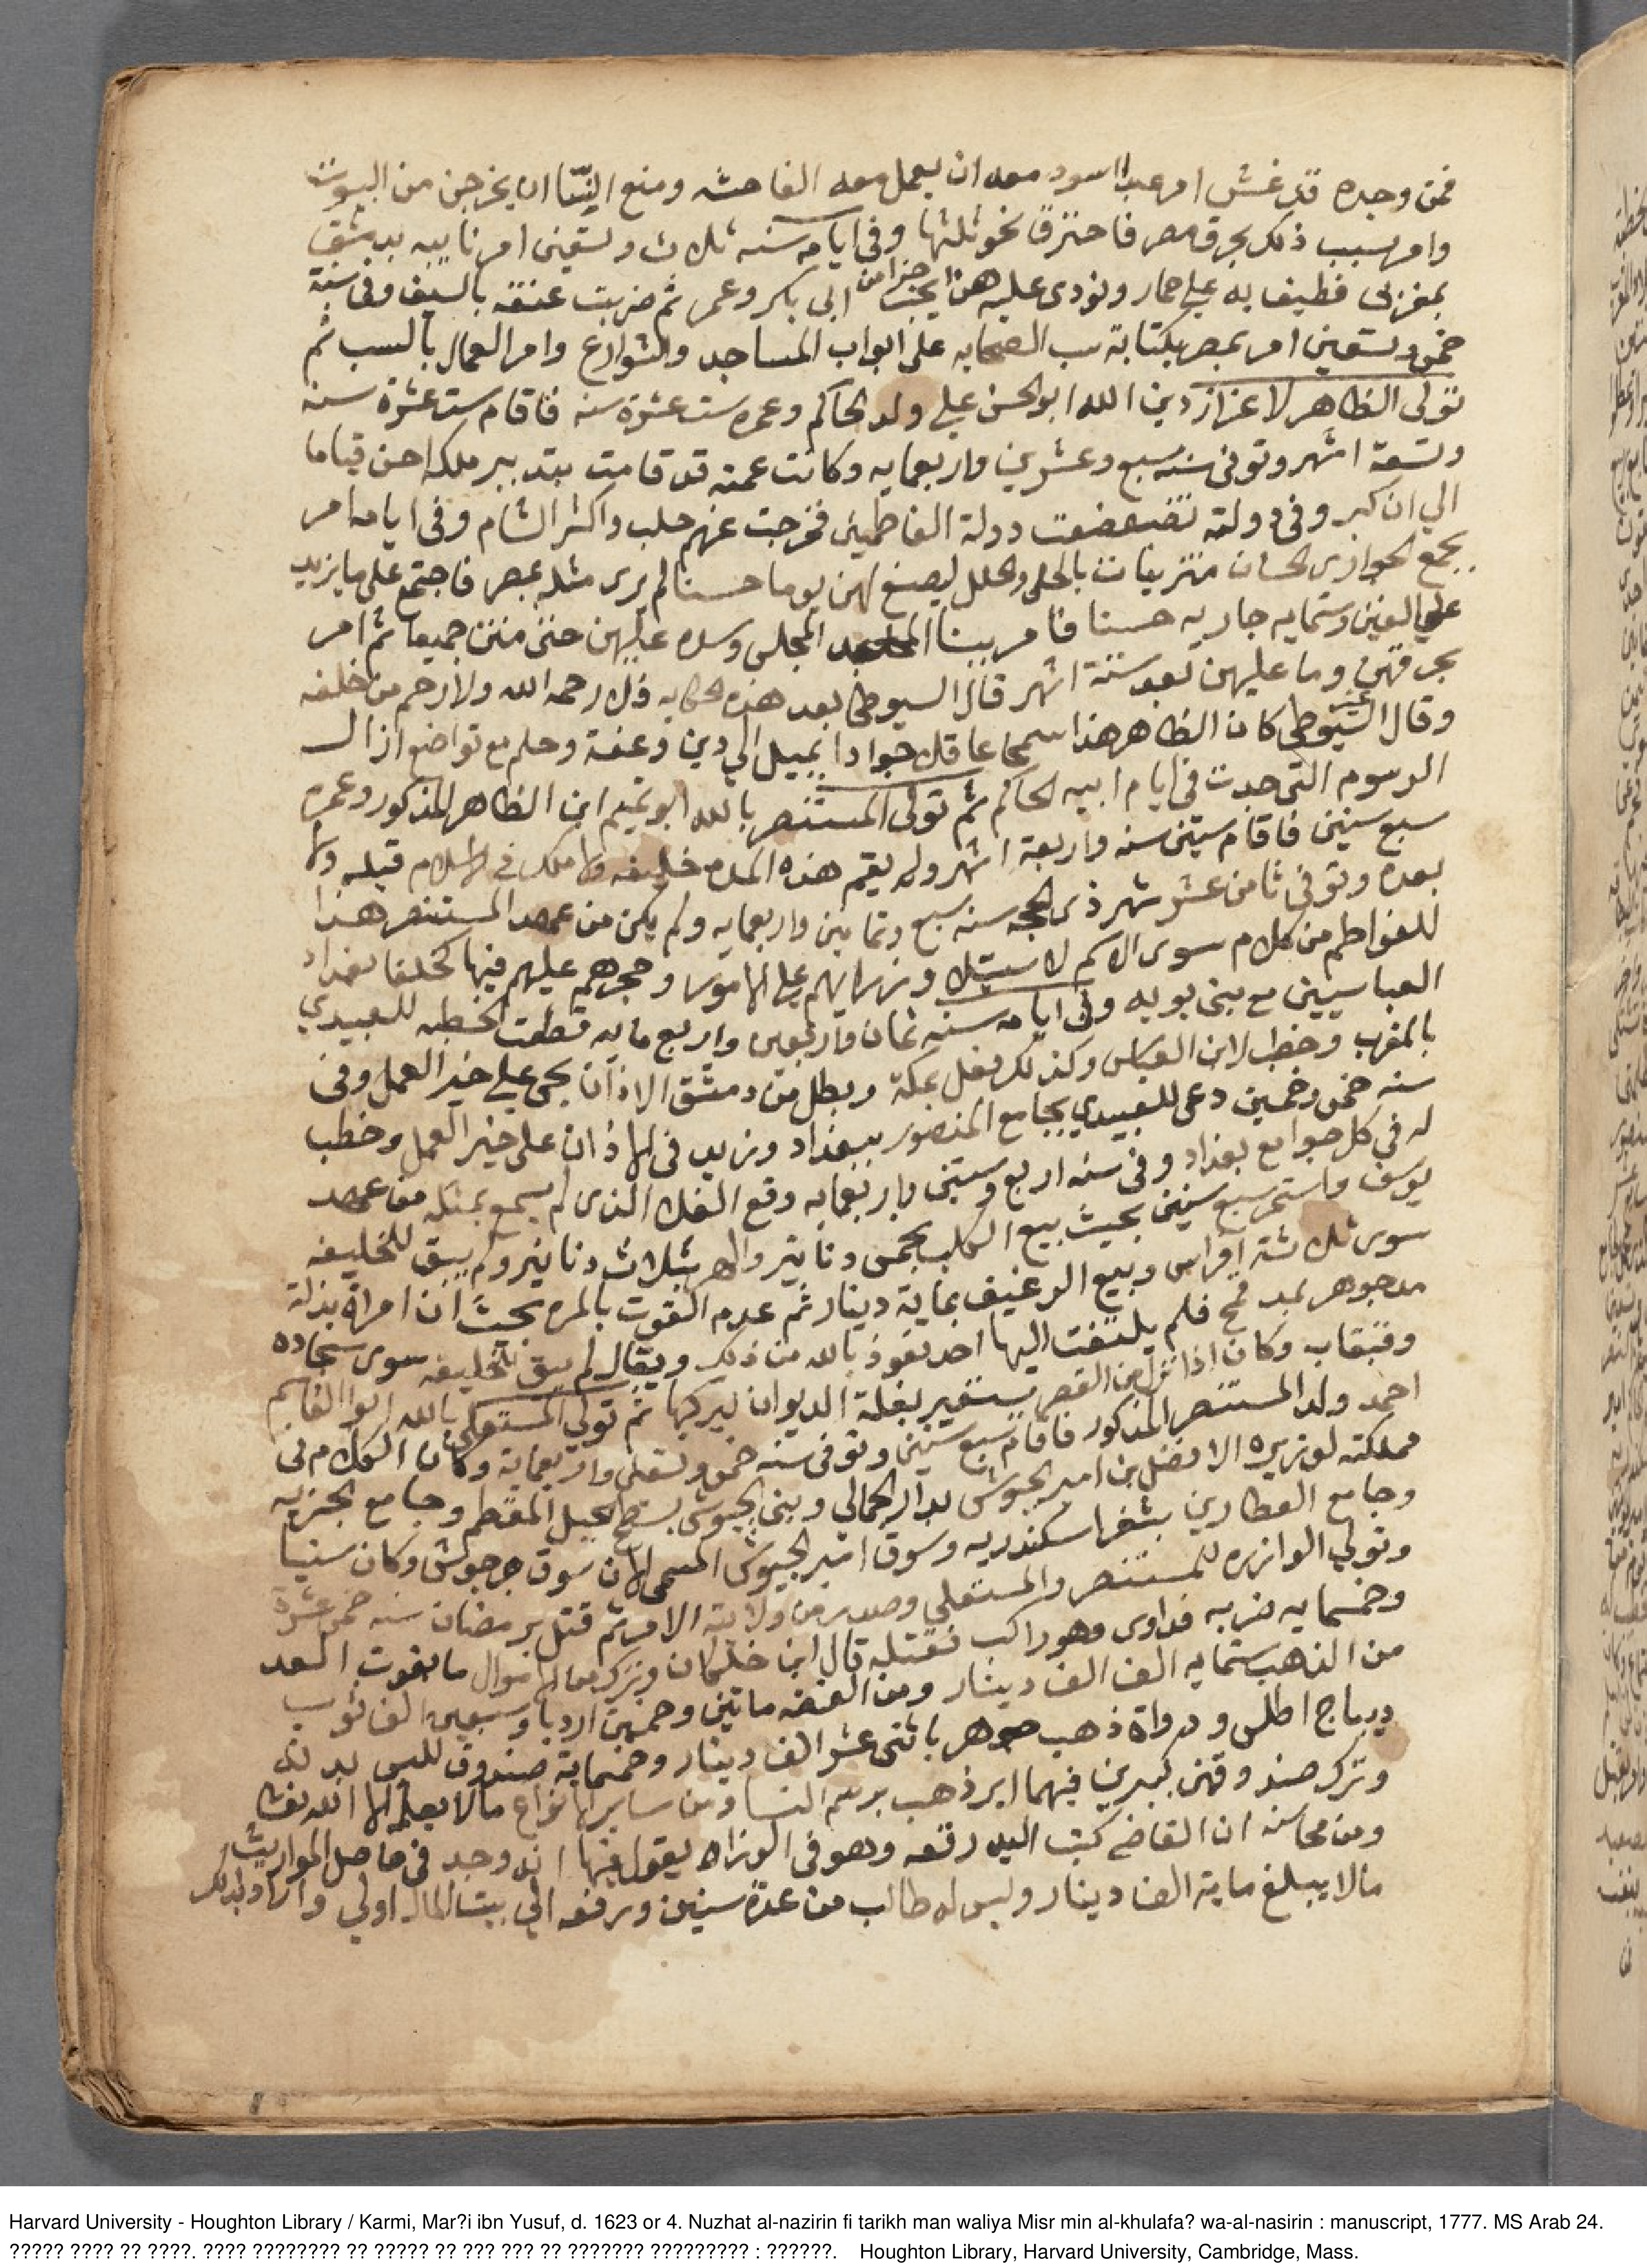 فمن وجده قد غش امر عبدا اسود معه ان يعمل معه الفاحشه ومنع النسا ان يخرجن من البيوت
وامر بسبب ذلك بحرق مصر فاحترق نحو ثلثها وفى ايامه سنه ثلاث وتسعين امر نايبه بدمشق
بمغربى فطيف به على حمار ونودى عليه هذا جزا من يحب ابى بكر وعمر ثم ضربت عنقه بالسيف وفى سنة
خمس وتسعين امر بمصر بكتابة سب الصحابه على ابواب المساجد والشوارع وامر العمال بالسب ثم
تولى الظاهر لاعزاز دين الله ابو الحسن على ولد الحاكم وعمره ست عشرة سنه فاقام ست عشرة سنه
وتسعة اشهر وتوفى سنه سبع وعشرين واربعمايه وكانت عمته قد قامت بتدبير ملكه احسن قياما
الي ان كبر وفى دولته تضعضعت دولة الفاطمين فخرجت عنهم حلب واكثر الشام وفى ايامه امر
بجمع الجوارى الحسان متزينات بالحلى والحلل ليصنع لهن يوما حسنا لم يرى مثله بمصر فاجتمع على ما يزيد
على الفين وستمايه جاريه حسنا فامر ببنا المجلس وسده عليهن حتى متن جميعا ثم امر
بحرقهن وما عليهن بعد ستة اشهر قال السيوطى بعد هذه الحكايه فلا رحمه الله ولا رحم من خلفه
وقال السيوطى كان الظاهر هذا سمحا عاقلا جوادا يميل الي دين وعفة وحلم مع تواضع ازال
الرسوم التى جدت فى ايام ابيه الحاكم ثم تولى المستنصر بالله ابو تميم ابن الظاهر المذكور وعمره
سبع سنين فاقام ستين سنه واربعة اشهر ولم يقم هذه المده خليفه ولا ملك فى الاسلام قبله ولا
بعده وتوفى ثامن عشر شهر ذى الحجه سنه سبع وثمانين واربعمايه ولم يكن من عهد المستنصر هذا
للفواطم من كلام سوى الاسم لاستيلا وزرايهم على الامور وحجرهم عليهم فيها كخلفا بغداد
العباسيين مع بنى بويه وفى ايامه سنه ثمان واربعين واربع مايه قطعت الخطبه للعبيدي
بالمغرب وخطب لابن العباس وكذلك فعل بمكة وبطل من دمشق الاذان بحى على خير العمل وفى
سنه خمس وخمسين دعى للعبيدي بجامع المنصور ببغداد وزيد فى الاذان على خير العمل وخطب
له في كل جوامع بغداد وفى سنه اربع وستين واربعمايه وقع الغلا الذى لم يسمع بمثله من عهد
يوسف واستمر سبع سنين بحيث بيع الكلب بخمس دنانير والهر بثلاث دنانير ولم يبق للخليفه
سوى ثلاثة افراس وبيع الرغيف بماية دينار ثم عدم القوت بالمره بحيث ان امراة بذلت
مد جوهر بمد قمح فلم يلتفت اليها احد نعوذ بالله من ذلك ويقال لم يبق للخليفه سوى سجاده
وقبقاب وكان اذا نزل من القصر يستعير بغلة الديوان ليركبها ثم تولى المستعلى بالله ابوا القاسم
احمد ولد المستنصر المذكور فاقام سبع سنين وتوفى سنه خمس وتسعين واربعماية وكان الكلام فى
مملكته لوزيره الافضل بن امير الجيوش بدر الجمالى وبنى الجيوشى بسفح جبل المقطم وجامع الجيزيه
وجامع العطارين بثغر اسكندريه وسوق امير الجيوش المسمى الان سوق مرجوش وكان سنيا
وتولى الوازره للمستنصر والمستعلى وصدر من ولاية الامر ثم قتل بر مضان سنه خمس عشرة
وخمسمايه ضربه فداوى وهو راكب فقتله قال ابن خلكان وترك من الاموال ما يفوت العد
من الذهب ستمايه الف الف دينار ومن الفضه ماتين وخمسين اردبا وسبعين الف ثوب
ديباج اطلس ودواة ذهب جوهر باثنى عشر الف دينار وخمسماية صندوق للبس بدنه
وترك صندوقين كبيرين فيهما ابر ذهب برسم النسا ومن ساير الانواع مالا يعلمه الا الله تعالى
ومن محاسنه ان القاضى كتب اليه رقعه وهو فى الوزاره يقول فيها انه وجد فى حاصل المواريث
مالا يبلغ ماية الف دينار وليس له طالب من عدة سنين ورفعه الى بيت المال اولي
Harvard University - Houghton Library / Karmi, Mar?i ibn Yusuf, d. 1623 or 4. Nuzhat al-nazirin fi tarikh man waliya Misr min al-khulafa? wa-al-nasirin : manuscript, 1777. MS Arab 24.
????? ???? ?? ????. ???? ???????? ?? ????? ?? ??? ??? ?? ??????? ????????? : ??????. Houghton Library, Harvard University, Cambridge, Mass.